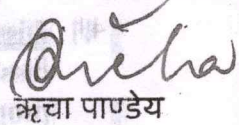 Richa
ऋचा पाण्डेय